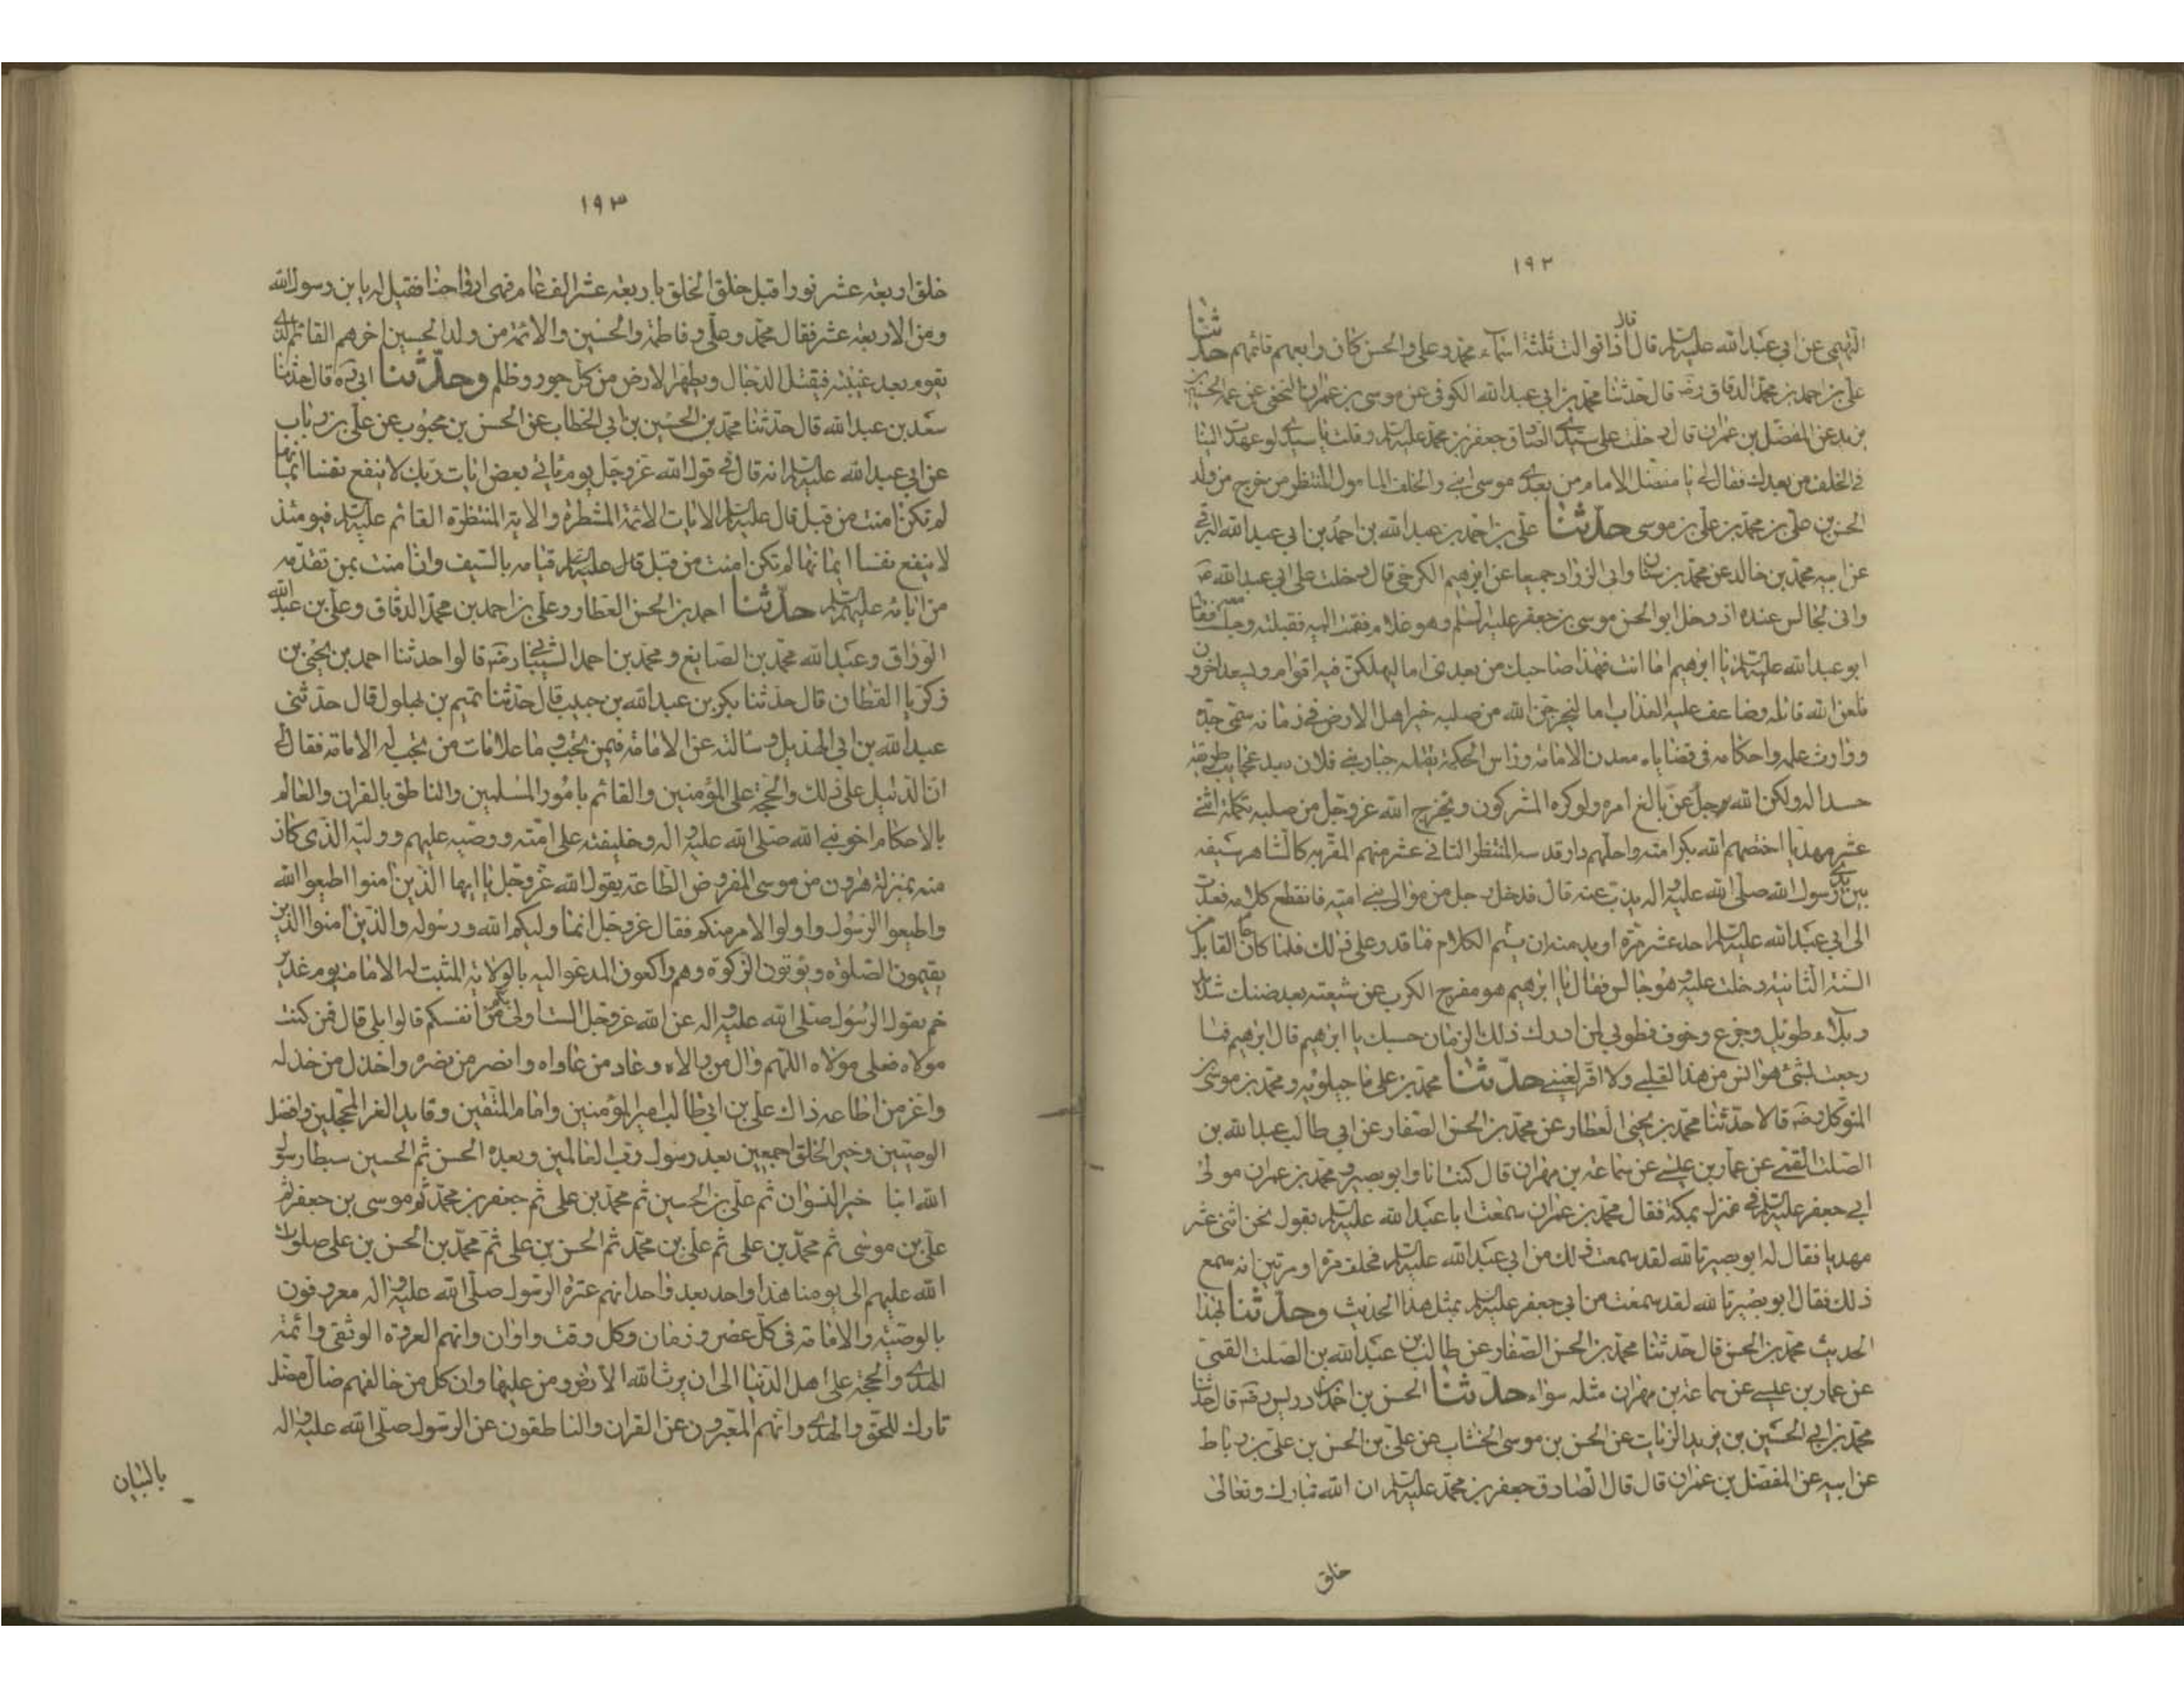 ١٩٢
التميمى عن ابى عبد الله عليه السلم قال قال اذا توالت ثلثة اسماء محمد وعلى والحسن كان رابعهم قائمهم حدثنا
على بن احمد بن محمد الدقاق رضه قال حدثنا محمد بن ابى عبد الله الكوفى عن موسى بن عمران النخعى عن عمه الحسين بن
يزيد عن المفضل بن عمران قال دخلت على سيدى الصادق جعفر بن محمد عليه السلم وقلت يا سيدى لو عهدت الينا
فى الخلف من بعدك فقال لى يا مفضل الامام من بعدى موسى ابنى والخلف المامول المنتظر من خرج من ولد
الحسن بن على بن محمد بن على بن موسى حدثنا على بن احمد بن عبد الله بن احمد بن ابى عبد الله البرقى
عن ابيه محمد بن خالد عن محمد بن سنان وابى الزراد جميعا عن ابرهيم الكرخى قال دخلت على ابى عبد الله ع
وانى لجالس عنده اذ دخل ابو الحسن موسى بن جعفر عليه السلم وهو غلام فقمت اليه فقبلته وجلست فقال
ابو عبد الله عليه السلم يا ابرهيم اما انت فهذا صاحبك من بعدى اما ليهلكن فيه اقوام ويسعد اخرون
فلعن الله قاتله وضاعف عليه العذاب اما ليخرجن الله من صلبه خير اهل الارض فى زمانه سمى جده
ووارث علمه واحكامه فى قضاياه معدن الامامة وراس الحكمة يقتله جبار بنى فلان بعد عجايب طريفة
حسدا له ولكن الله عز وجل بالغ امره ولو كره المشركون ويخرج الله عز وجل من صلبه تكملة اثنى
عشر مهديا اختصهم الله بكرامته واحلهم دار قدسه المنتظر الثانى عشر منهم المقر به كالشاهر سيفه
بين يدى رسول الله صلى الله عليه واله يذب عنه قال فدخل رجل من موالى بنى امية فانقطع كلامه فعدت
الى ابى عبد الله عليه السلم احد عشر مرة اريد منه ان يتم الكلام فما قدر على ذلك فلما كان عام القابل من
السنة الثانية دخلت عليه وهو جالس فقال يا ابرهيم هو مفرج الكرب عن شيعته بعد ضنك شديد
وبلاء طويل وجزع وخوف فطوبى لمن ادرك ذلك الزمان حسبك يا ابرهيم قال ابرهيم فما
رجعت بشئ هو انس من هذا لقلبى ولا اقر لعينى حدثنا محمد بن على ماجيلويه ومحمد بن موسى بن
المتوكل رضه قالا حدثنا محمد بن يحيى العطار عن محمد بن الحسن الصفار عن ابى طالب عبد الله بن
الصلت القمى عن عمار بن عيسى عن سماعة بن مهران قال كنت انا وابو بصير ومحمد بن عمران مولى
ابى جعفر عليه السلم فى منزله بمكة فقال محمد بن عمران سمعت ابا عبد الله عليه السلم يقول نحن اثنى عشر
مهديا فقال له ابو بصير تالله لقد سمعت ذلك من ابى عبد الله عليه السلم فحلف مرة او مرتين انه سمع
ذلك فقال ابو بصير تالله لقد سمعت من ابى جعفر عليه السلم بمثل هذا الحديث وحدثنا بهذا
الحديث محمد بن الحسن قال حدثنا محمد بن الحسن الصفار عن طالب بن عبد الله بن الصلت القمى
عن عمار بن عيسى عن سماعة بن مهران مثله سواء حدثنا الحسن بن احمد بن ادريس رضه قال حدثنا
محمد بن ابى الحسين بن يزيد الزيات عن الحسن بن موسى الخشاب عن على بن الحسن بن على بن رباط
عن ابيه عن المفضل بن عمران قال قال الصادق جعفر بن محمد عليه السلم ان الله تبارك وتعالى
خلق
١٩٣
خلق اربعة عشر نورا قبل خلق الخلق باربعة عشر الف عام فهى ارواحنا فقيل له يا بن رسول الله
ومن الاربعة عشر فقال محمد وعلى وفاطمة والحسنين والائمة من ولد الحسين اخرهم القائم الذى
يقوم بعد غيبته فيقتل الدجال ويطهر الارض من كل جور وظلم وحدثنا ابى ره قال حدثنا
سعد بن عبد الله قال حدثنا محمد بن الحسين بن ابى الخطاب عن الحسن بن محبوب عن على بن رباب
عن ابى عبد الله عليه السلم انه قال فى قول الله عز وجل يوم ياتى بعض ايات ربك لا ينفع نفسا ايمانها
لم تكن امنت من قبل قال عليه السلم الايات الائمة المنتظرة والاية المنتظرة القائم عليه السلم فيومئذ
لا ينفع نفسا ايمانها لم تكن امنت من قبل قال عليه السلم قيامه بالسيف وان امنت بمن تقدمه
من ابائه عليهم السلم حدثنا احمد بن الحسن العطار وعلى بن احمد بن محمد الدقاق وعلى بن عبد الله
الوراق وعبد الله محمد بن الصايغ ومحمد بن احمد الشيبانى رضه قالوا حدثنا احمد بن يحيى بن
زكريا القطان قال حدثنا بكر بن عبد الله بن حبيب قال حدثنا تميم بن بهلول قال حدثنى
عبد الله بن ابى الهذيل وسالته عن الامامة فيمن تجب وما علامات من تجب له الامامة فقال لى
ان الدليل على ذلك والحجة على المؤمنين والقائم بامور المسلمين والناطق بالقران والعالم
بالاحكام اخو نبى الله صلى الله عليه واله وخليفته على امته ووصيه عليهم ووليه الذى كان
منه بمنزلة هرون من موسى المفروض الطاعة يقول الله عز وجل يا ايها الذين امنوا اطيعوا الله
واطيعوا الرسول واولوا الامر منكم فقال عز وجل انما وليكم الله ورسوله والذين امنوا الذين
يقيمون الصلوة ويؤتون الزكوة وهم راكعون المدعو اليه بالولاية المثبت له الامامة يوم غدير
خم يقول الرسول صلى الله عليه واله عن الله عز وجل الست اولى بكم من انفسكم قالوا بلى قال فمن كنت
مولاه فعلى مولاه اللهم وال من والاه وعاد من عاداه وانصر من نصره واخذل من خذله
واعز من اطاعه ذاك على بن ابى طالب امير المؤمنين وامام المتقين وقايد الغر المحجلين وافضل
الوصيين وخير الخلق اجمعين بعد رسول رب العالمين وبعده الحسن ثم الحسين سبطا رسول
الله ابنا خير النسوان ثم على بن الحسين ثم محمد بن على ثم جعفر بن محمد ثم موسى بن جعفر ثم
على بن موسى ثم محمد بن على ثم على بن محمد ثم الحسن بن على ثم محمد بن الحسن بن على صلوات
الله عليهم الى يومنا هذا واحد بعد واحد انهم عترة الرسول صلى الله عليه واله معروفون
بالوصية والامامة فى كل عصر وزمان وكل وقت واوان وانهم العروة الوثقى وائمة
الهدى والحجة على اهل الدنيا الى ان يرث الله الارض ومن عليها وان كل من خالفهم ضال مضل
تارك للحق والهدى وانهم المعبرون عن القران والناطقون عن الرسول صلى الله عليه واله
بالبيان